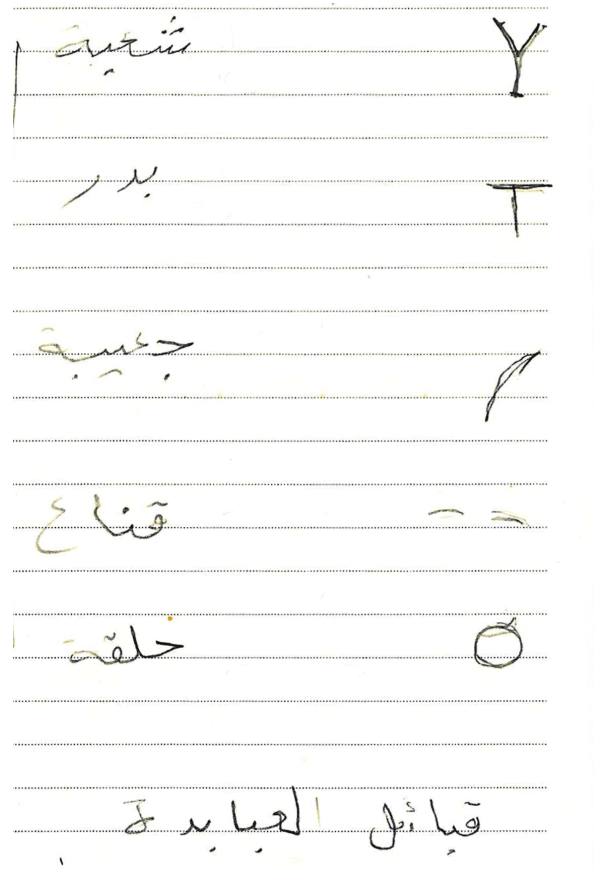 شعبة
بدر
جعيبة
قناع
حلقة
قبائل العبابدة